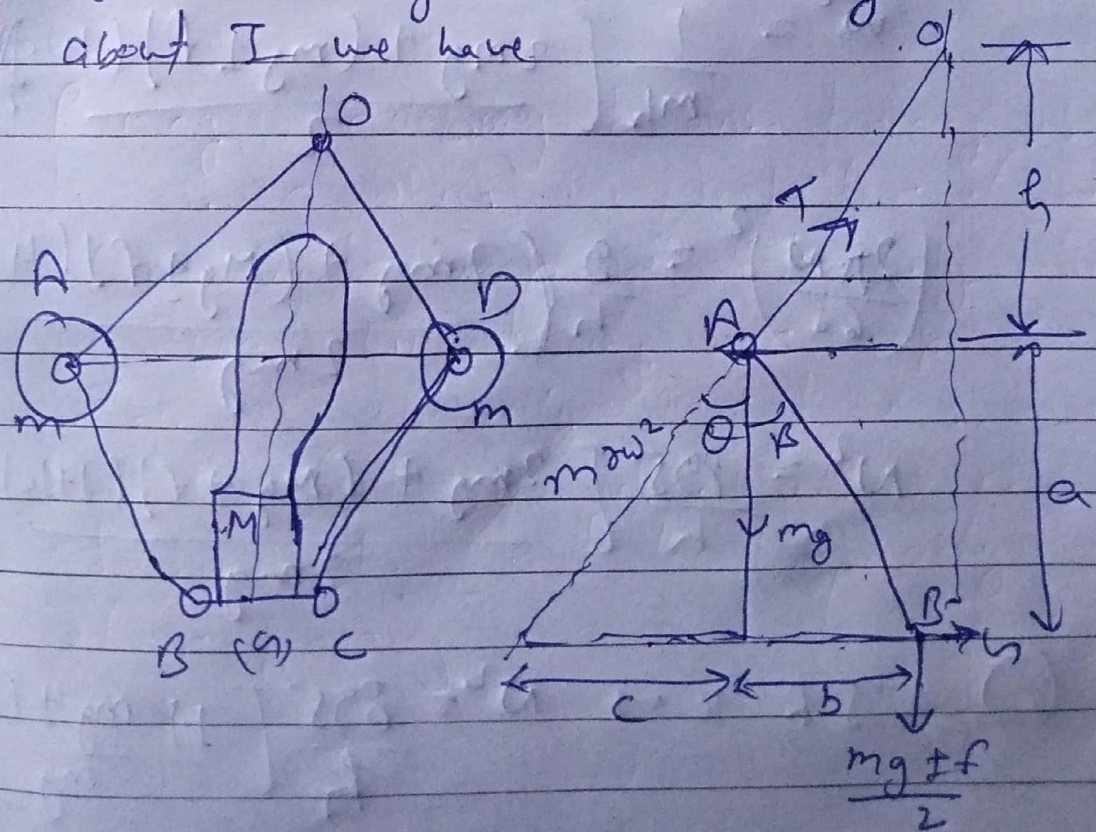 about I we have
O
A
D
m
m
M
B (a) C
O
h
T
A
θ β
mrω²
mg
a
B
c
b
mg ± f
2